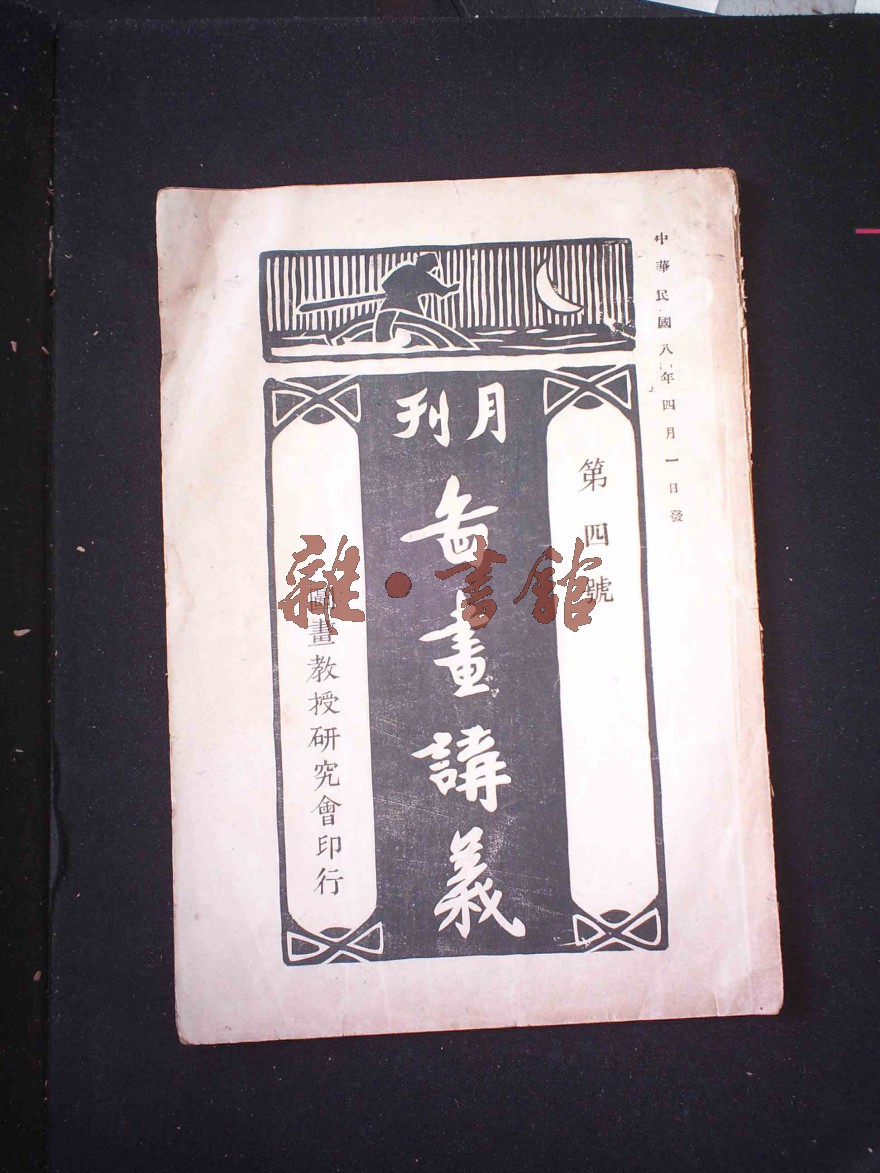 中華民國八年四月一日發
第四號
月刊
啚畫講義
圖畫教授研究會印行
雜·書館